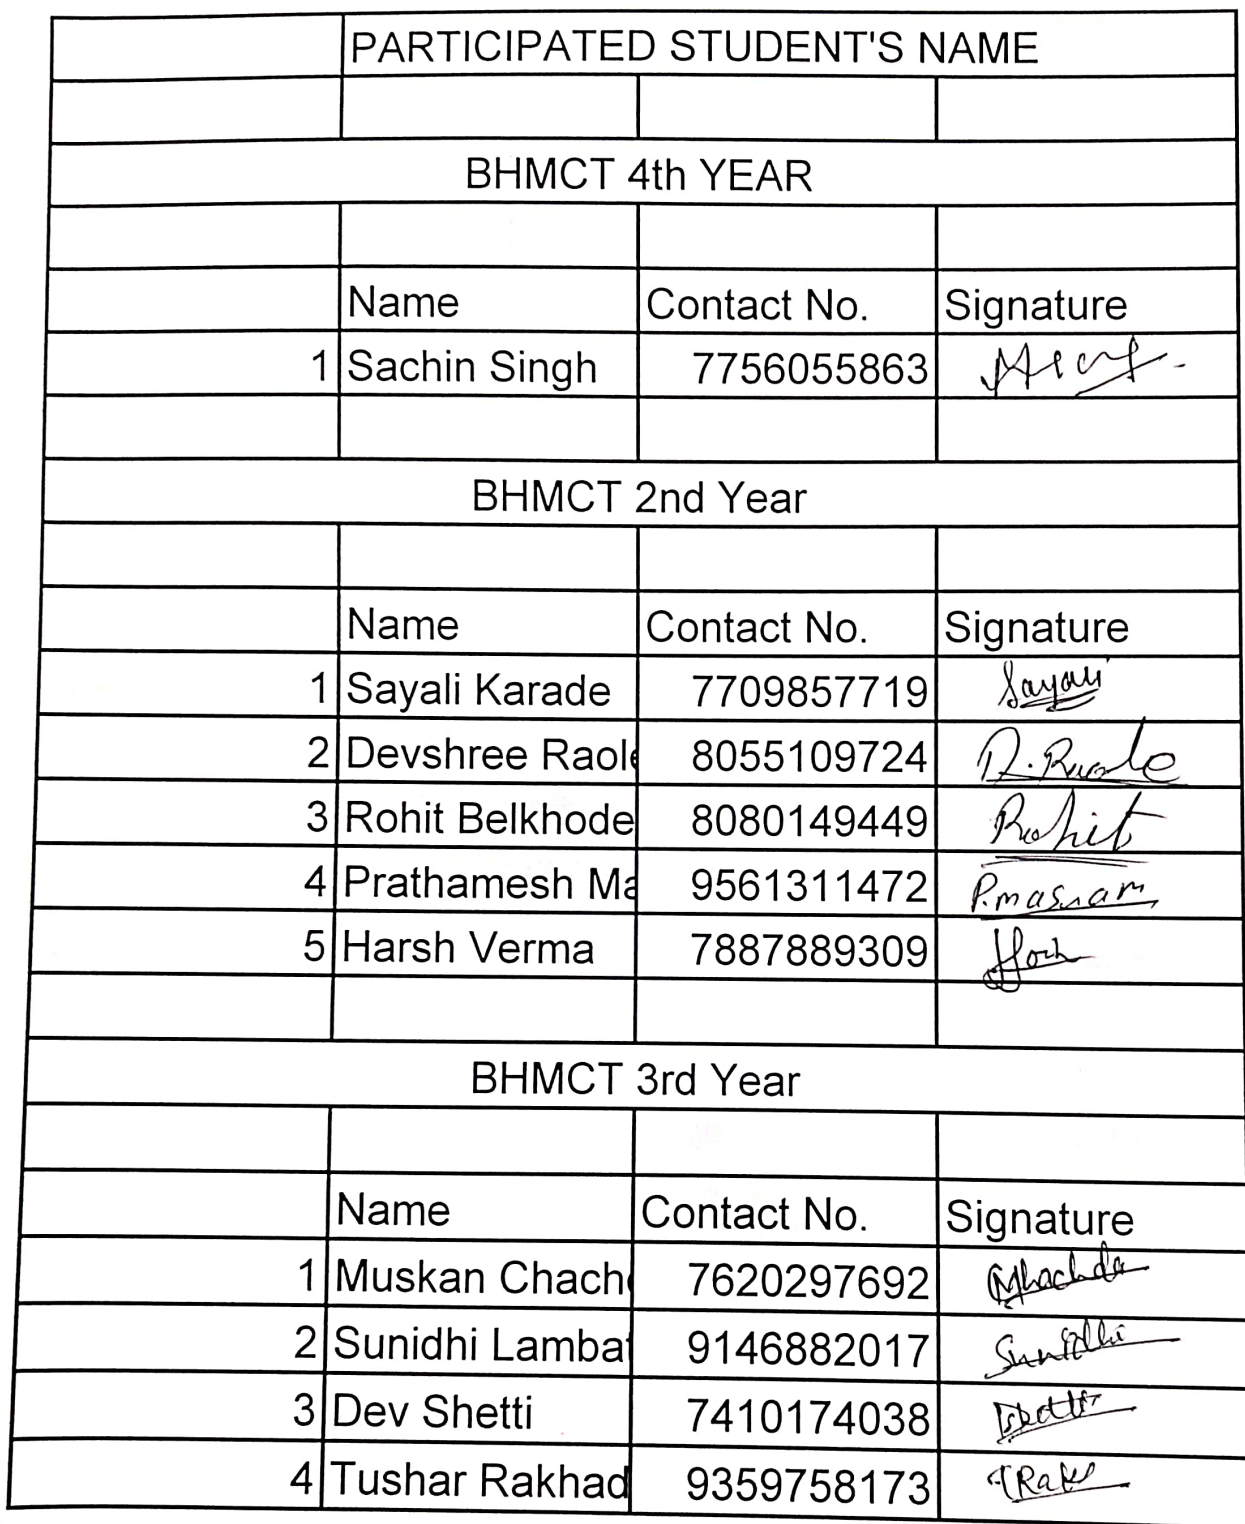 PARTICIPATED STUDENT'S NAME
BHMCT 4th YEAR
Name Contact No. Signature
1 Sachin Singh 7756055863
BHMCT 2nd Year
Name Contact No. Signature
1 Sayali Karade 7709857719 Sayali
2 Devshree Raole 8055109724 D.Raole
3 Rohit Belkhode 8080149449 Rohit
4 Prathamesh Ma 9561311472 P.masram
5 Harsh Verma 7887889309
BHMCT 3rd Year
Name Contact No. Signature
1 Muskan Chach 7620297692
2 Sunidhi Lamba 9146882017 Sunidhi
3 Dev Shetti 7410174038
4 Tushar Rakhad 9359758173